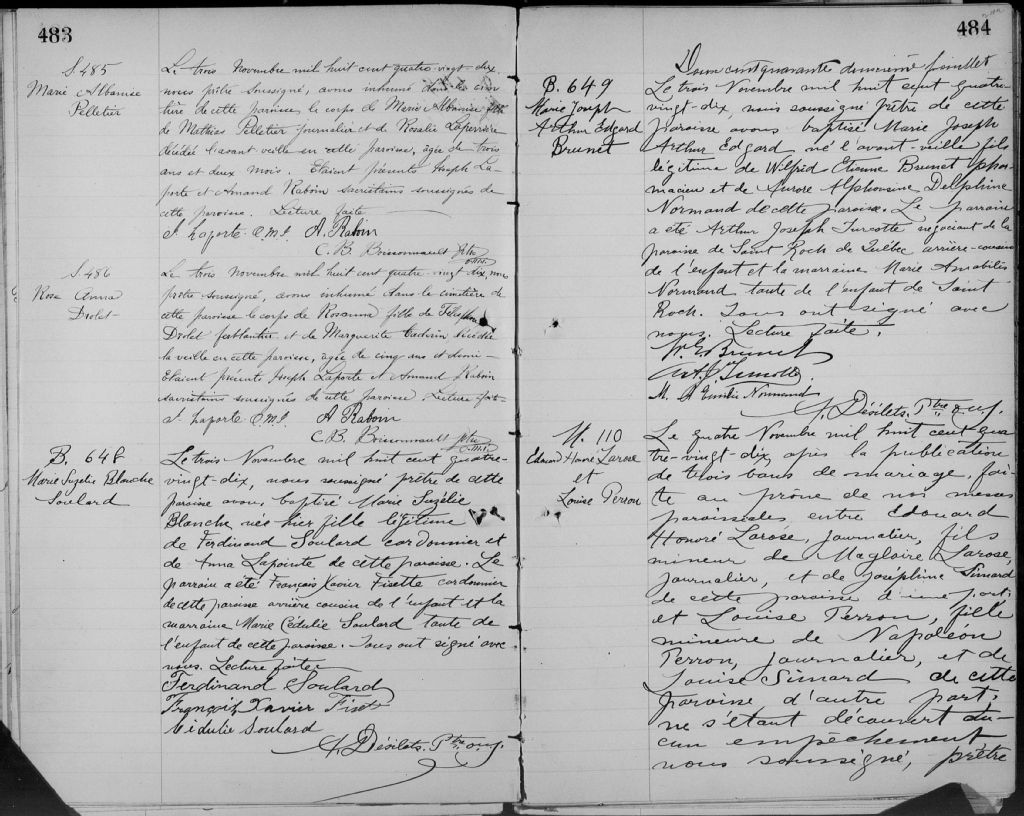 483
S. 485
Marie Albamise
Pelletier
Le trois Novembre mil huit cent quatre-vingt-dix
nous prêtre soussigné, avons inhumé dans le cime-
tière de cette paroisse le corps de Marie Albamise fille
de Mathias Pelletier journalier et de Rosalie Laperrière
décédée l'avant veille en cette paroisse, agée de trois
ans et deux mois. Etaient présents Joseph La-
porte et Amand Raboin sacristains soussignés de
cette paroisse. Lecture faite
J. Laporte O.M.I. A. Raboin
C. B. Boissonnault ptre
o.m.i.
S. 486
Rose Anna
Drolet
Le trois Novembre mil huit cent quatre-vingt dix, nous
prêtre soussigné, avons inhumé dans le cimetière de
cette paroisse le corps de Rosanna fille de Télesphore
Drolet ferblantier et de Marguerite décédée
la veille en cette paroisse, agée de cinq ans et demi-
Etaient présents Joseph Laporte et Amand Raboin
sacristains soussignés de cette paroisse Lecture faite
J. Laporte O.M.I. A. Raboin
C. B. Boissonnault ptre
o.m.i.
B. 648
Marie Suzélie Blanche
Soulard
Le trois Novembre mil huit cent quatre-
vingt-dix, nous soussigné prêtre de cette
paroisse avons baptisé Marie Suzélie
Blanche, née hier fille légitime
de Ferdinand Soulard cordonnier et
de Anna Lapointe de cette paroisse. Le
parrain a été François Xavier Fisette cordonnier
de cette paroisse arrière cousin de l'enfant et la
marraine Marie Cédulie Soulard tante de
l'enfant de cette paroisse. Tous ont signé avec
nous. Lecture faite
Ferdinand Soulard
François Xavier Fiset
Cédulie Soulard
J. Désilets. Ptre o.m.j.
484
Deux cent quarante deuxième feuillet
B. 649
Marie Joseph
Arthur Edgard
Brunet
Le trois Novembre mil huit cent quatre-
vingt-dix, nous soussigné prêtre de cette
paroisse avons baptisé Marie Joseph
Arthur Edgard né l'avant-veille fils
légitime de Wilfrid Etienne Brunet phar
macien et de Aurore Alphonsine Delphine
Normand de cette paroisse. Le parrain
a été Arthur Joseph Turcotte négociant de la
paroisse de Saint Roch de Québec arrière-cousin
de l'enfant et la marraine Marie Amabilis
Normand tante de l'enfant de Saint
Roch. Tous ont signé avec
nous. Lecture faite.
W. E. Brunet
Arth. J. Turcotte
M. A Emilie Normand
J. Désilets. Ptre o.m.j.
M. 110
Edouard Honoré Larose
et
Louise Perron
Le quatre Novembre mil huit cent qua
tre-vingt-dix, après la publication
de trois bans de mariage, fai-
te au prône de nos messes
paroissiales entre Edouard
Honoré Larose, journalier, fils
mineur de Magloire Larose,
journalier, et de Joséphine Simard
de cette paroisse d'une part;
et Louise Perron, fille
mineure de Napoléon
Perron, journalier, et de
Louise Simard de cette
paroisse d'autre part,
ne s'étant découvert au-
cun empêchement
nous soussigné, prêtre